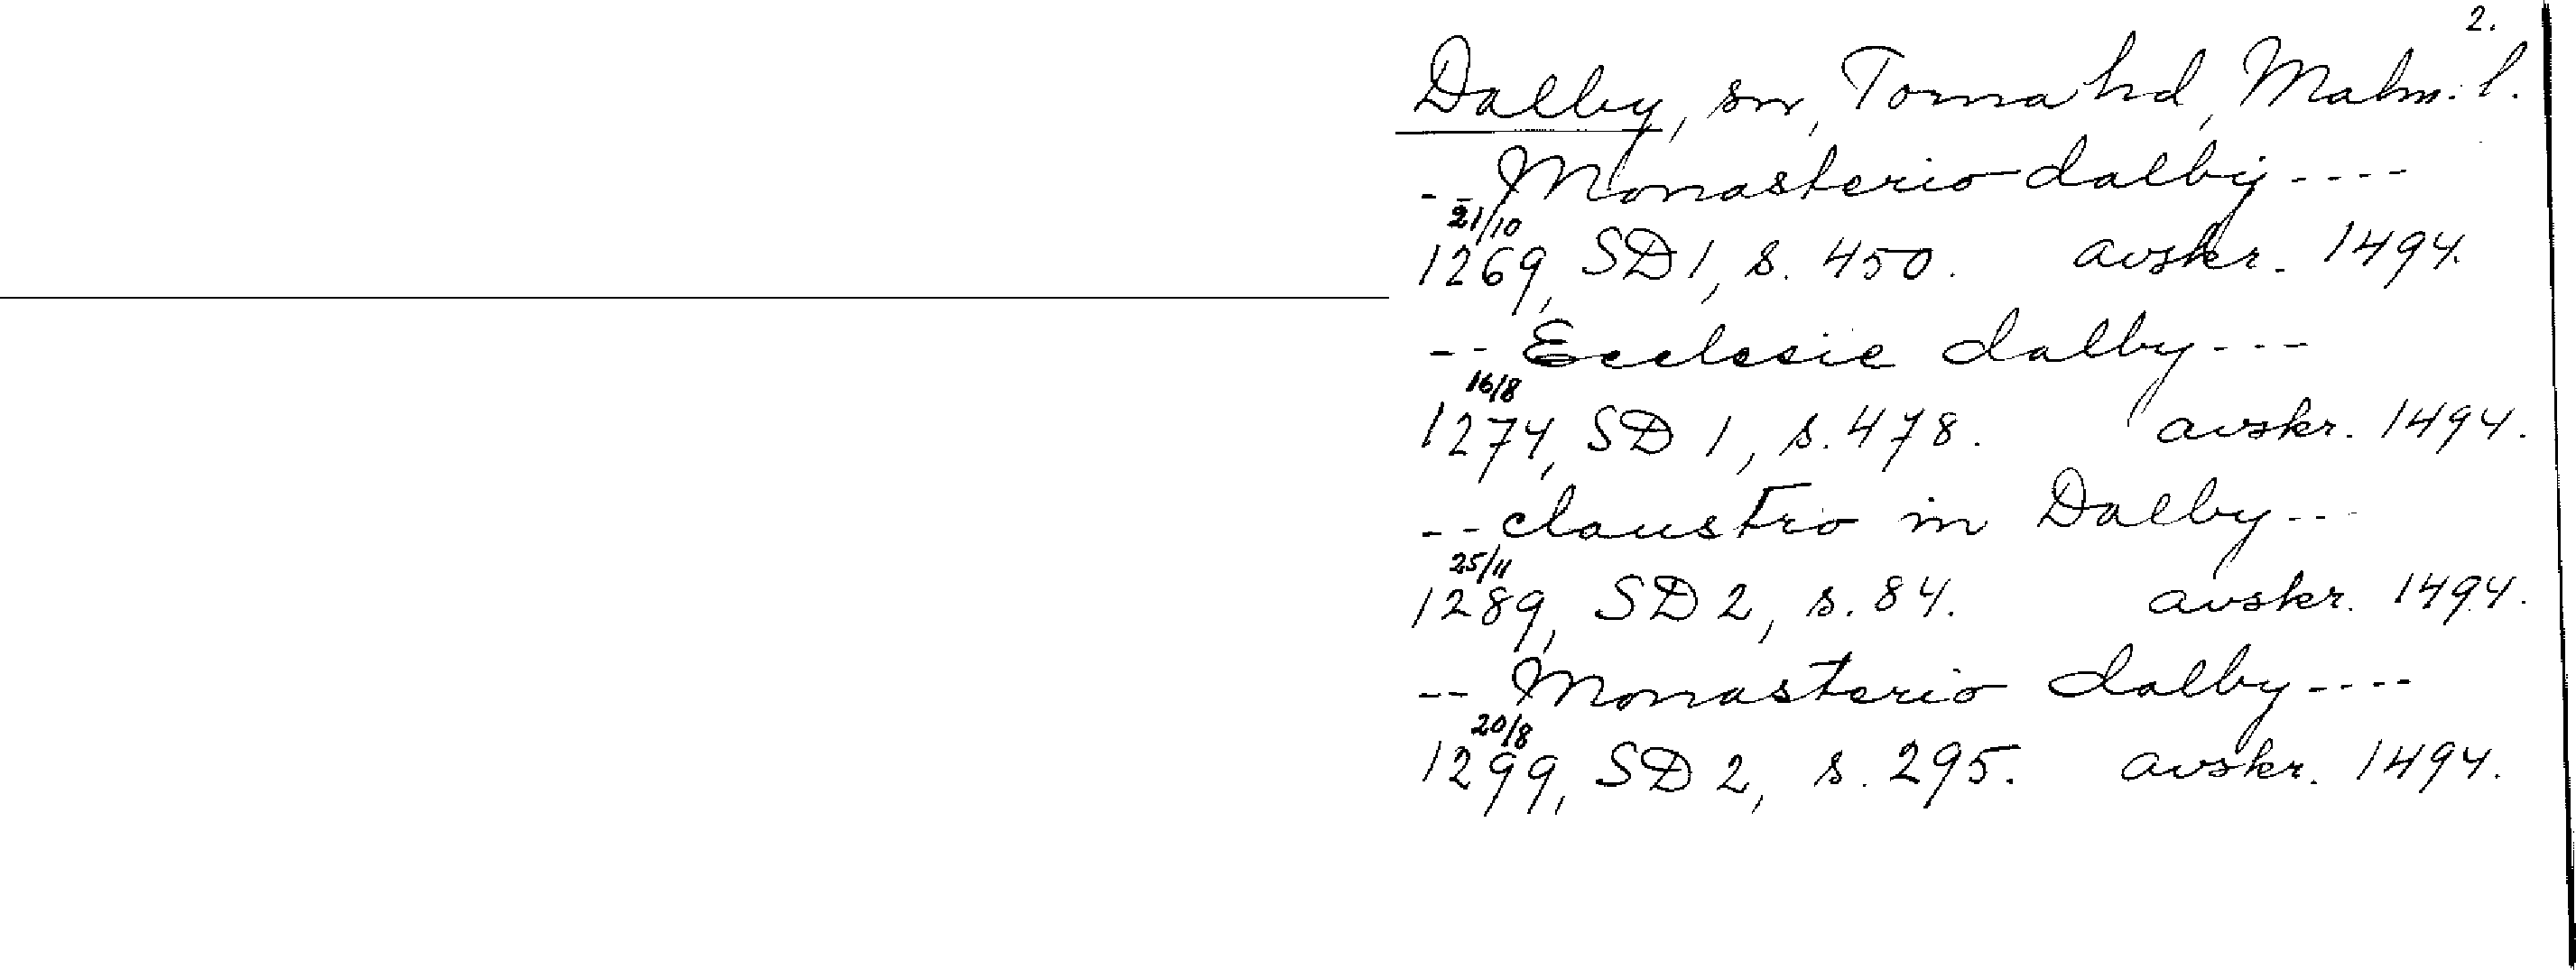 2.
Dalby, sn, Torna hd, Malm. l.
-- Monasterio dalby ----
21/10
1269, SD 1, s. 450. avskr. 1494.
-- Ecclesie dalby ---
16/8
1274, SD 1, s. 478. avskr. 1494.
-- claustro in Dalby ---
25/11
1289, SD 2, s. 84. avskr. 1494.
-- Monasterio dalby ----
20/8
1299, SD 2, s. 295. avskr. 1494.